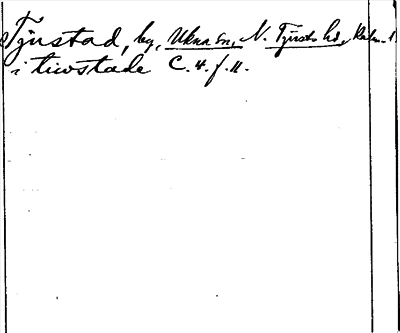 Tjustad, by, Ukna sn, N. Tjusts hd, Kalm. l.
i tiwstade C. 4. f. 11.